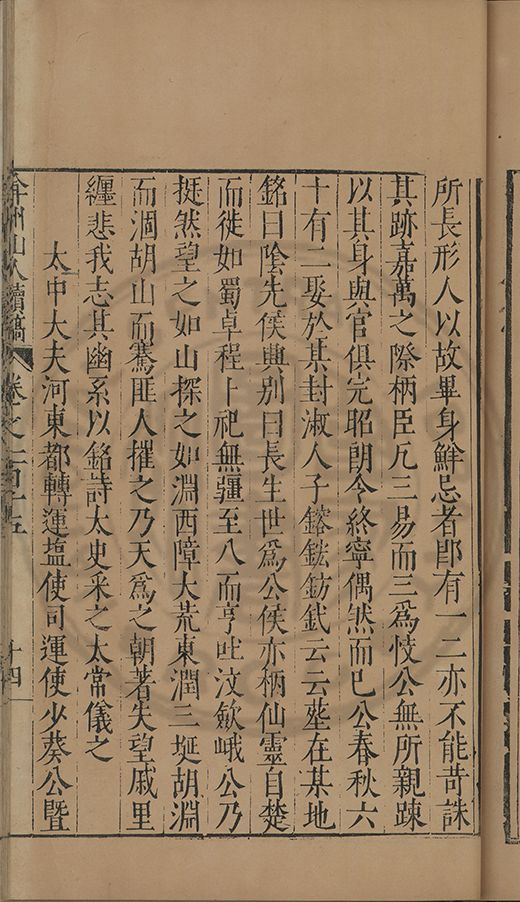 所長形人以故畢身鮮忌者卽有一二亦不能苛誅
其跡嘉萬之際柄臣凡三易而三爲忮公無所親踈
以其身與官俱完昭朗令終寧偶然而已公春秋六
十有二娶於某封淑人子鎔鋐鈁釴云云塟在某地
銘曰陰先侯興別曰長生世爲公侯亦柄仙靈自楚
而徙如蜀卓程卜祀無疆至八而亨吐汶歛峨公乃
挺然望之如山探之如淵西障大荒東潤三埏胡淵
而涸胡山而騫匪人摧之乃天爲之朝著失望戚里
纏悲我志其幽系以銘詩太史采之太常儀之
太中大夫河東都轉運塩使司運使少葵公曁
弇州山人續稿 卷之一百十五 十四